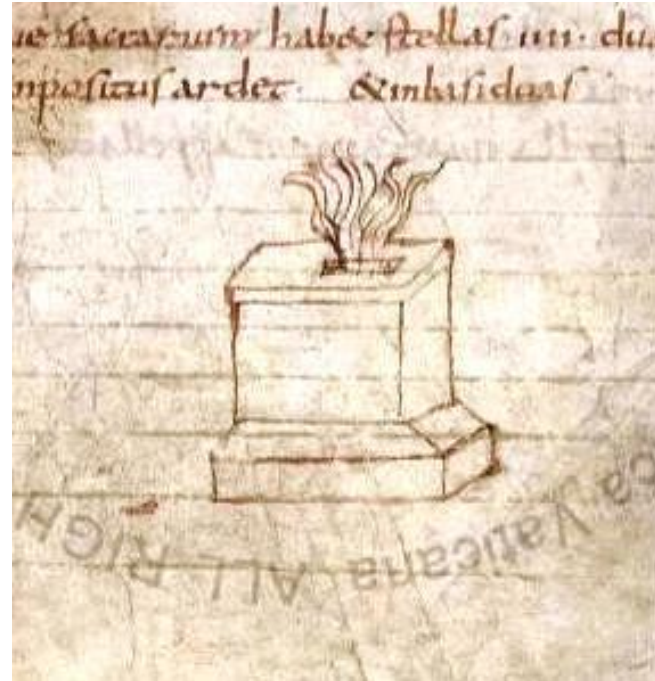 sacrarium habet stellas · iiii · du
npositus ardet · & in basi duas
ca Vaticana ALL RIGH